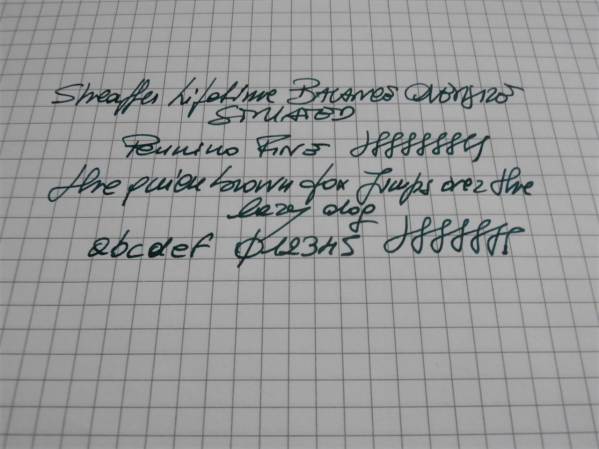 Sheaffer Lifetime BALANCE OVERSIZE
STRIATED
Pennino FINE
the quick brown fox jumps over the
lazy dog
abcdef 012345